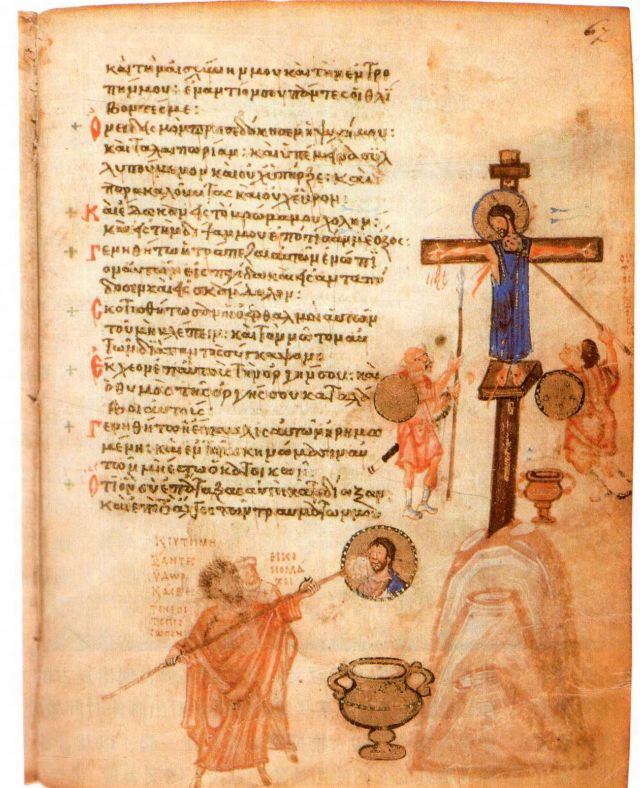 67
καὶ τὴν αἰσχύνην μου καὶ τὴν ἐντρο
πήν μου: ἐναντίον σου πάντες οἱ θλί
βοντές με:
Ὀνειδισμὸν προσεδόκησεν ἡ ψυχή μου:
καὶ ταλαιπωρίαν: καὶ ὑπέμεινα συλ
λυπούμενον καὶ οὐχ ὑπῆρξε: καὶ
παρακαλοῦντας καὶ οὐχ εὗρον:
Καὶ ἔδωκαν εἰς τὸ βρῶμά μου χολήν:
καὶ εἰς τὴν δίψαν μου ἐπότισάν με ὄξος:
Γενηθήτω ἡ τράπεζα αὐτῶν ἐνώπι
ον αὐτῶν εἰς παγίδα καὶ εἰς ἀνταπό
δοσιν καὶ εἰς σκάνδαλον:
Σκοτισθήτωσαν οἱ ὀφθαλμοὶ αὐτῶν
τοῦ μὴ βλέπειν: καὶ τὸν νῶτον αὐ
τῶν διαπαντὸς σύγκαμψον
Ἔκχεον ἐπ' αὐτοὺς τὴν ὀργήν σου: καὶ
ὁ θυμὸς τῆς ὀργῆς σου καταλά
βοι αὐτούς
Γενηθήτω ἡ ἔπαυλις αὐτῶν ἠρημω
μένη: καὶ ἐν τοῖς σκηνώμασιν αὐ
τῶν μὴ ἔστω ὁ κατοικῶν:
Ὅτι ὃν σὺ ἐπάταξας αὐτοὶ κατεδίωξαν
καὶ ἐπὶ τὸ ἄλγος τῶν τραυμάτων μου